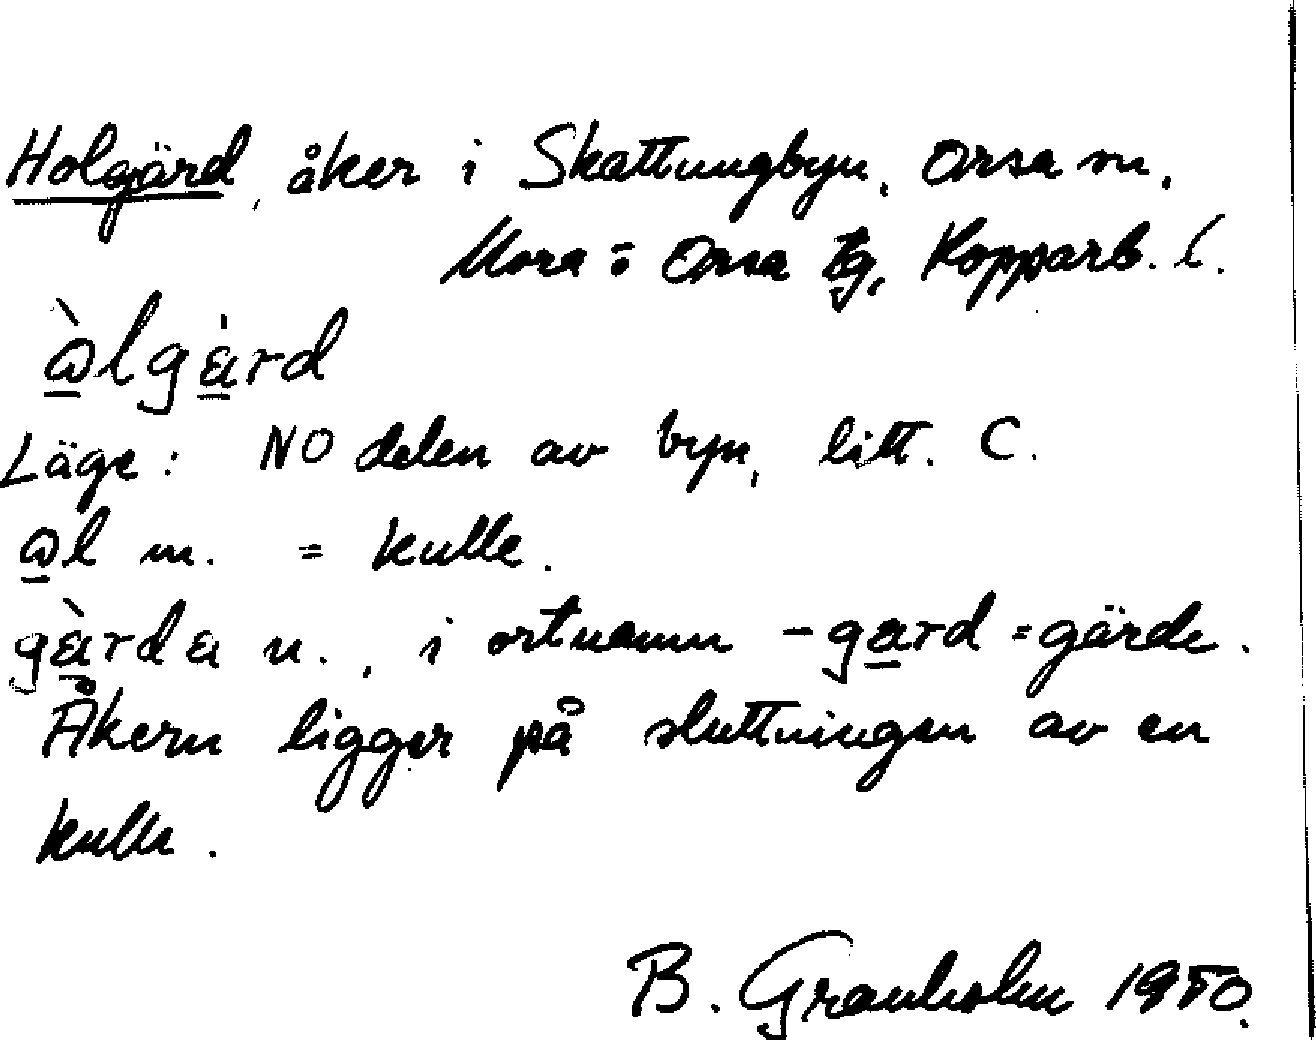 Holgärd, åker i Skattungbyn, Orsa sn,
Mora o. Orsa tg, Kopparb. l.
ὰlgὰrd
Läge: NO delen av byn, litt. C.
al m. = kulle.
gàrda n., i ortnamn -gard = gärde.
Åkern ligger på sluttningen av en
kulle.
B. Granholm 1950.